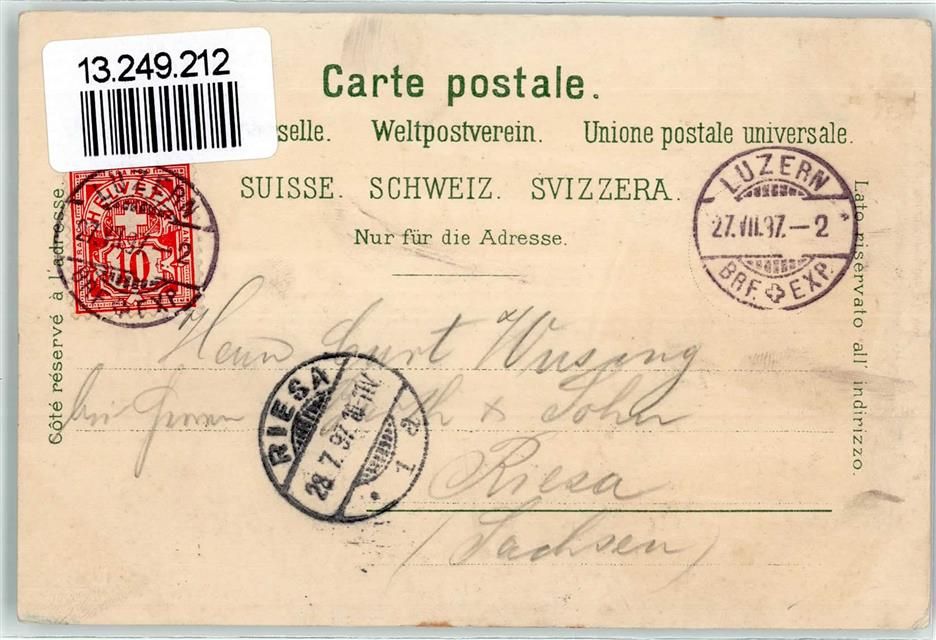 13.249.212
Carte postale.
selle. Weltpostverein. Unione postale universale.
SUISSE. SCHWEIZ. SVIZZERA.
Nur für die Adresse.
Côté réservé à l'adresse.
Lato riservato all' indirizzo.
10
LUZERN
27.VII.97.–2
BRF. EXP.
RIESA
28.7.97.
1 a
Herrn Curt
& Sohn
Riesa
(Sachsen)